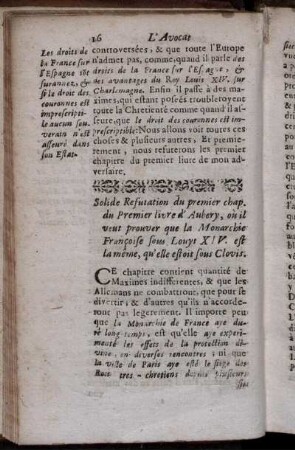 16 L'Avocat
Les droits de
la France sur
l'Espagne
si le droit des
couronnes est
imprescripti-
ble aucun sou-
verain n'est
asseuré dans
son Estat.
controversées, & que toute l'Europe
n'admet pas, comme, quand il parle des
droits de la France sur l'Espagne, &
des avantages du Roy Louis XIV. sur
Charlemagne. Enfin il passe à des ma-
ximes, qui estant posées troubleroyent
toute la Chretienté comme quand il as-
seure, que le droit des couronnes est im-
prescriptible: Nous allons voir toutes ces
choses & plusieurs autres. Et premie-
rement, nous refuterons les premier
chapitre du premier livre de mon ad-
versaire.
Solide Refutation du premier chap.
du Premier livre d'Aubery, où il
veut prouver que la Monarchie
Françoise sous Louys XIV. est
la même, qu'elle estoit sous Clovis.
CE chapitre contient quantité de
Maximes indifferentes, & que les
Allemans ne combattront, que pour se
divertir, & d'autres qu'ils n'accorde-
ront pas legerement. Il importe peu
que la Monarchie de France aye du-
ré long temps, & qu'elle aye experi-
menté les effets de la protection di-
vine, en diverses rencontres; ni que
la ville de Paris aye esté le siege des
Rois tres-chrestiens depuis plusieurs